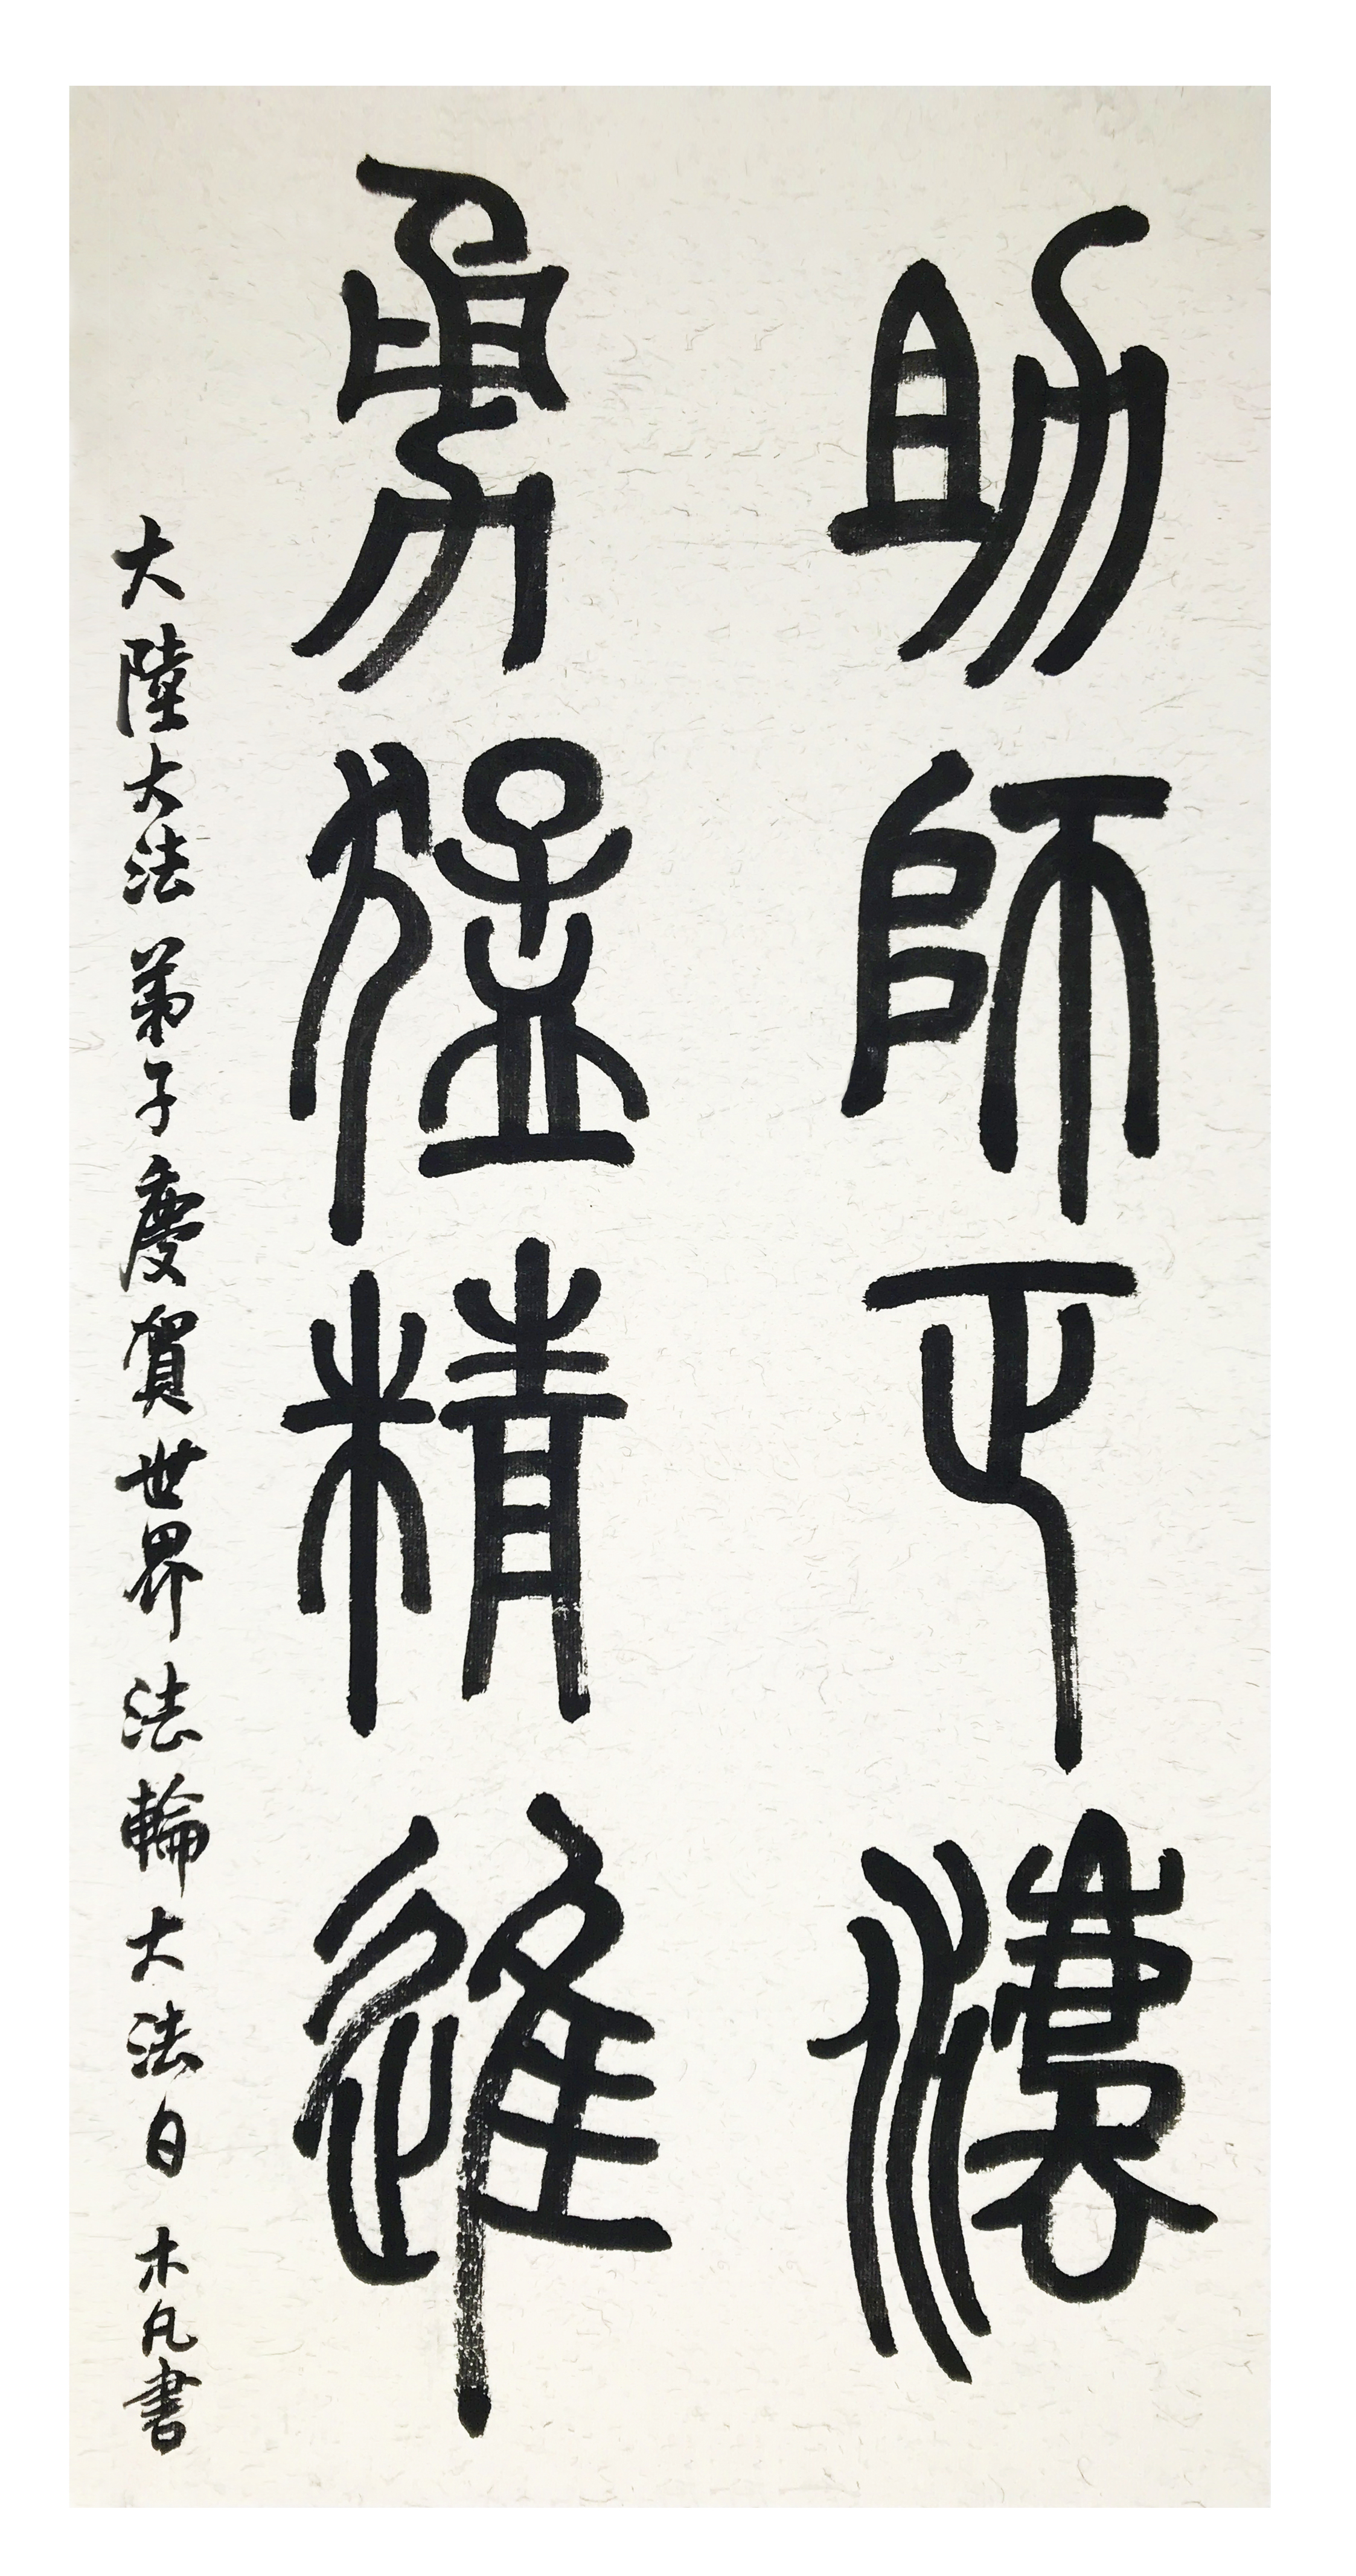 助師正法
勇猛精進
大陸大法弟子慶賀世界法輪大法日 木凡書